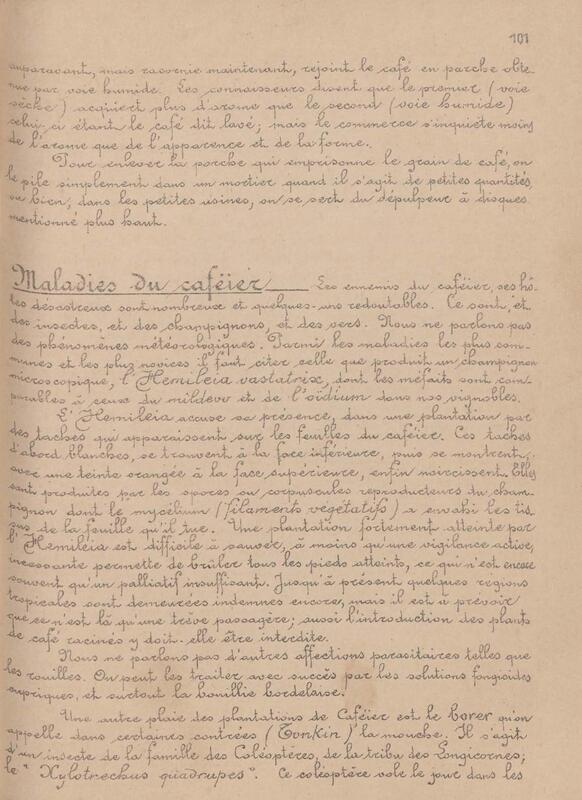 101
auparavant, mais racornie maintenant, rejoint le café en parche obte-
nue par voie humide. Les connaisseurs disent que le premier (voie
sèche) acquiert plus d'arome que le second (voie humide)
celui-ci étant le café dit lavé; mais le commerce s'inquiète moins
de l'arome que de l'apparence et de la forme.
Pour enlever la parche qui emprisonne le grain de café, on
le pile simplement dans un mortier quand il s'agit de petites quantités
ou bien, dans les petites usines, on se sert du dépulpeur à disques
mentionné plus haut.
Maladies du caféier Les ennemis du caféier, ses hô-
tes désastreux sont nombreux et quelques-uns redoutables. Ce sont, et
des insectes, et des champignons, et des vers. Nous ne parlons pas
des phénomènes météorologiques. Parmi les maladies les plus com-
munes et les plus novices il faut citer celle que produit un champignon
microscopique, l'Hemileia vastatrix, dont les méfaits sont com-
parables à ceux du mildew et de l'oïdium dans nos vignobles.
L'Hemileia accuse sa présence, dans une plantation par
des taches qui apparaissent sur les feuilles du caféier. Ces taches
d'abord blanches, se trouvent à la face inférieure, puis se montrent,
avec une teinte orangée à la face supérieure, enfin noircissent. Elles
sont produites par les spores ou corpuscules reproducteurs du cham-
pignon dont le mycélium (filaments végétatifs) a envahi les tis-
sus de la feuille qu'il tue. Une plantation fortement atteinte par
l'Hemileia est difficile à sauver, à moins qu'une vigilance active,
incessante permette de brûler tous les pieds atteints, ce qui n'est encore
souvent qu'un palliatif insuffisant. Jusqu'à présent quelques régions
tropicales sont demeurées indemnes encore, mais il est à prévoir
que ce n'est là qu'une trève passagère; aussi l'introduction des plants
de café racinés y doit-elle être interdite.
Nous ne parlons pas d'autres affections parasitaires telles que
les rouilles. On peut les traiter avec succès par les solutions fongicides
cupriques, et surtout la bouillie bordelaise.
Une autre plaie des plantations de Caféier est le borer qu'on
appelle dans certaines contrées (Tonkin) la mouche. Il s'agit
d'un insecte de la famille des Coléoptères, de la tribu des Longicornes;
le "Xylotrechus quadrupes". Ce coléoptère vole le jour dans les